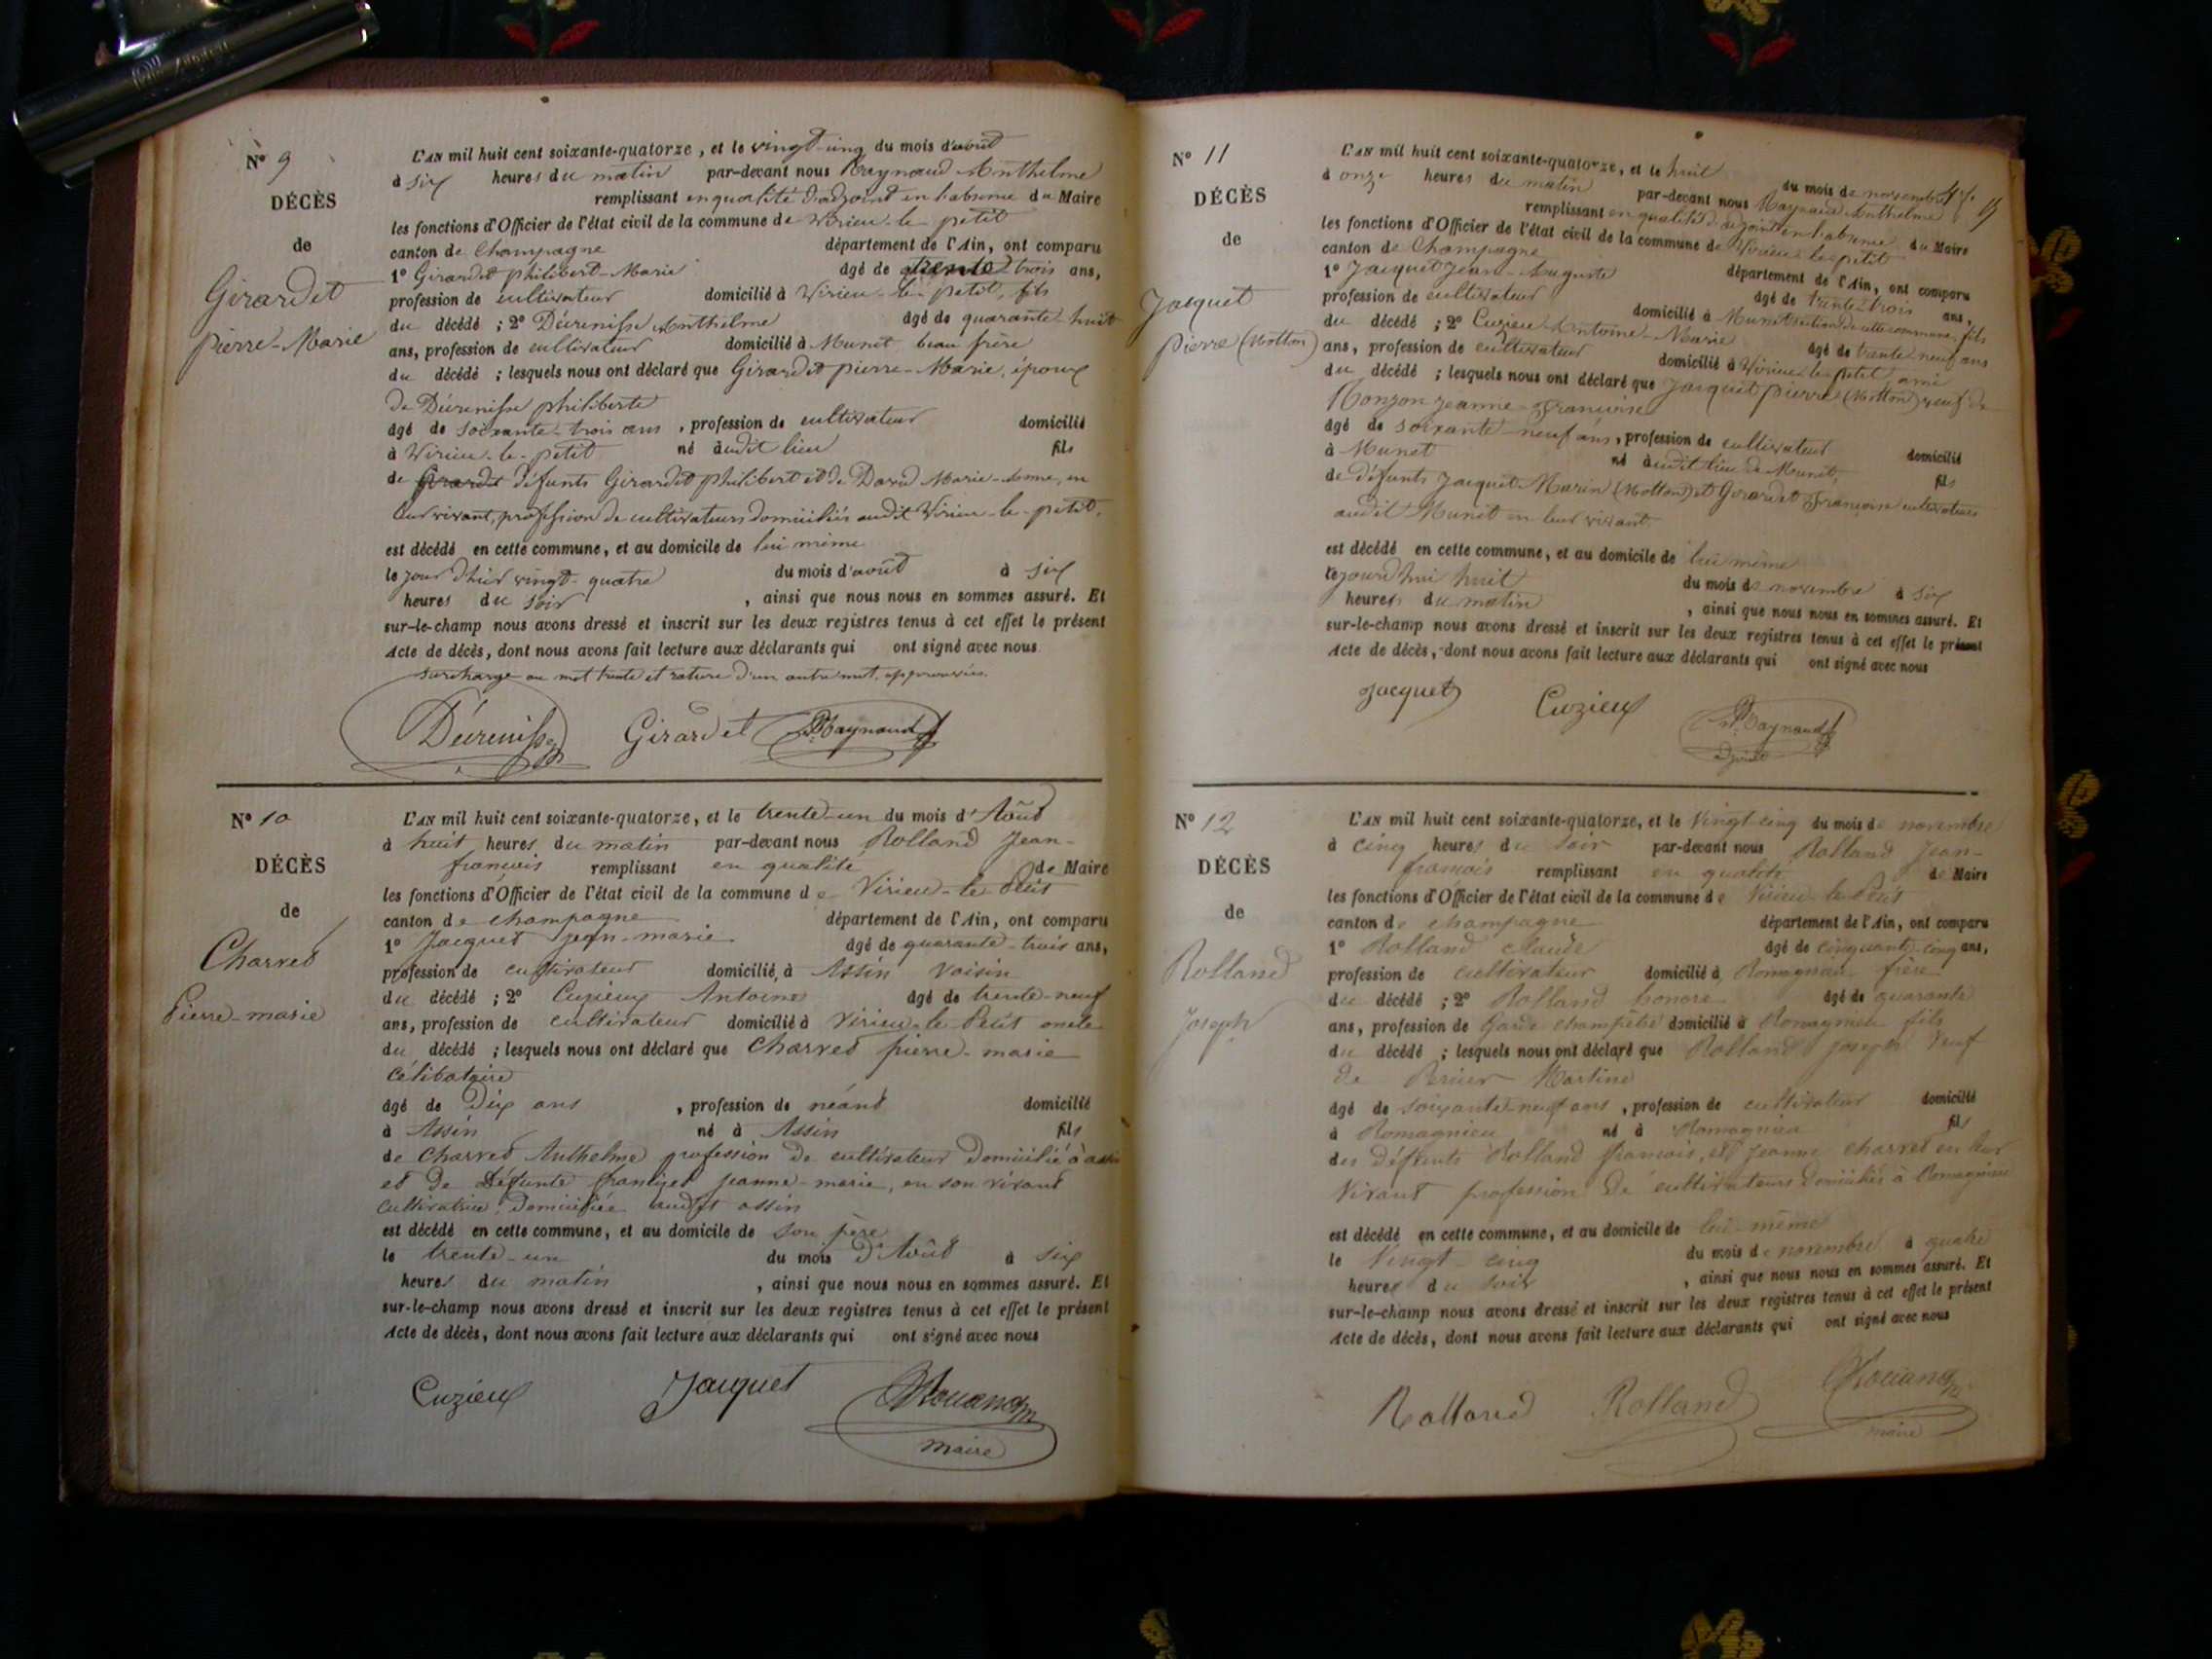 Nº 9
DÉCÈS
de
Girardet
Pierre-Marie
L'AN mil huit cent soixante-quatorze, et le vingt-cinq du mois d'août
à six heures du matin par-devant nous Raynaud Anthelme
remplissant en qualité d'adjoint en l'absence du Maire
les fonctions d'Officier de l'état civil de la commune de Virieu-le-petit
canton de Champagne département de l'Ain, ont comparu
1º Girardet philibert-Marie âgé de trente trois ans,
profession de cultivateur domicilié à Virieu-le-petit, fils
du décédé ; 2º Décrenisse Anthelme âgé de quarante-huit
ans, profession de cultivateur domicilié à Munet beau frère
du décédé ; lesquels nous ont déclaré que Girardet pierre-Marie, époux
de Décrenisse philiberte
âgé de soixante-trois ans, profession de cultivateur domicilié
à Virieu-le-petit né audit lieu fils
de Girardet défunts Girardet philibert et de David Marie-Anne, en
leur vivant, profession de cultivateurs domiciliés audit Virieu-le-petit.
est décédé en cette commune, et au domicile de lui même
le jour d'hier vingt-quatre du mois d'août à six
heures du soir, ainsi que nous nous en sommes assuré. Et
sur-le-champ nous avons dressé et inscrit sur les deux registres tenus à cet effet le présent
Acte de décès, dont nous avons fait lecture aux déclarants qui ont signé avec nous
surcharge au mot trente et rature d'un autre mot, approuvées.
Décrenisse Girardet Raynaud
Nº 10
DÉCÈS
de
Charvet
Pierre-marie
L'AN mil huit cent soixante-quatorze, et le trente-un du mois d'Août
à huit heures du matin par-devant nous Rolland Jean-
françois remplissant en qualité de Maire
les fonctions d'Officier de l'état civil de la commune de Virieu-le-Petit
canton de champagne département de l'Ain, ont comparu
1º Jacquet jean-marie âgé de quarante-trois ans,
profession de cultivateur domicilié à Assin voisin
du décédé ; 2º Cuzieux Antoine âgé de trente-neuf
ans, profession de cultivateur domicilié à Virieu-le-Petit oncle
du décédé ; lesquels nous ont déclaré que Charvet pierre-marie
célibataire
âgé de Dix ans, profession de néant domicilié
à Assin né à Assin fils
de Charvet Anthelme profession de cultivateur Domicilié à assin
et de Défunte jeanne-marie, en son vivant
cultivatrice Domiciliée audit assin
est décédé en cette commune, et au domicile de son père
le trente-un du mois d'Août à six
heures du matin, ainsi que nous nous en sommes assuré. Et
sur-le-champ nous avons dressé et inscrit sur les deux registres tenus à cet effet le présent
Acte de décès, dont nous avons fait lecture aux déclarants qui ont signé avec nous
Cuzieux Jacquet
maire
Nº 11
DÉCÈS
de
Jacquet
Pierre (Motton)
L'AN mil huit cent soixante-quatorze, et le huit du mois de novembre
à onze heures du matin par-devant nous Raynaud Anthelme
remplissant en qualité d'adjoint en l'absence du Maire
les fonctions d'Officier de l'état civil de la commune de Virieu-le-petit
canton de Champagne département de l'Ain, ont comparu
1º Jacquet Jean-Auguste âgé de trente-trois ans,
profession de cultivateur domicilié à Munet section de cette commune, fils
du décédé ; 2º Cuzieu Antoine-Marie âgé de trente-neuf ans
ans, profession de cultivateur domicilié à Virieu-le-petit ami
du décédé ; lesquels nous ont déclaré que Jacquet pierre (Motton) veuf de
jeanne-Françoise
âgé de soixante-neuf ans, profession de cultivateur domicilié
à Munet né audit lieu de Munet, fils
de défunts Jacquet Marin (Motton) et Girardet Françoise cultivateurs
audit Munet en leur vivant
est décédé en cette commune, et au domicile de lui même
lejourd'hui huit du mois de novembre à six
heures du matin, ainsi que nous nous en sommes assuré. Et
sur-le-champ nous avons dressé et inscrit sur les deux registres tenus à cet effet le présent
Acte de décès, dont nous avons fait lecture aux déclarants qui ont signé avec nous
Jacquet Cuzieux Raynaud
adjoint
Nº 12
DÉCÈS
de
Rolland
Joseph
L'AN mil huit cent soixante-quatorze, et le Vingt-cinq du mois de novembre
à cinq heures du soir par-devant nous Rolland Jean-
françois remplissant en qualité de Maire
les fonctions d'Officier de l'état civil de la commune de Virieu-le-Petit
canton de champagne département de l'Ain, ont comparu
1º Rolland claude âgé de cinquante-cinq ans,
profession de cultivateur domicilié à Romagnieu frère
du décédé ; 2º Rolland honoré âgé de quarante
ans, profession de Garde champêtre domicilié à Romagnieu fils
du décédé ; lesquels nous ont déclaré que Rolland joseph Veuf
de Martine
âgé de soixante neuf ans, profession de cultivateur domicilié
à Romagnieu né à Romagnieu fils
des Défunts Rolland françois, et jeanne charvet en leur
Vivant profession de cultivateurs Domiciliés à Romagnieu
est décédé en cette commune, et au domicile de lui-même
le Vingt-cinq du mois de novembre à quatre
heures du soir, ainsi que nous nous en sommes assuré. Et
sur-le-champ nous avons dressé et inscrit sur les deux registres tenus à cet effet le présent
Acte de décès, dont nous avons fait lecture aux déclarants qui ont signé avec nous
Rolland Rolland
maire